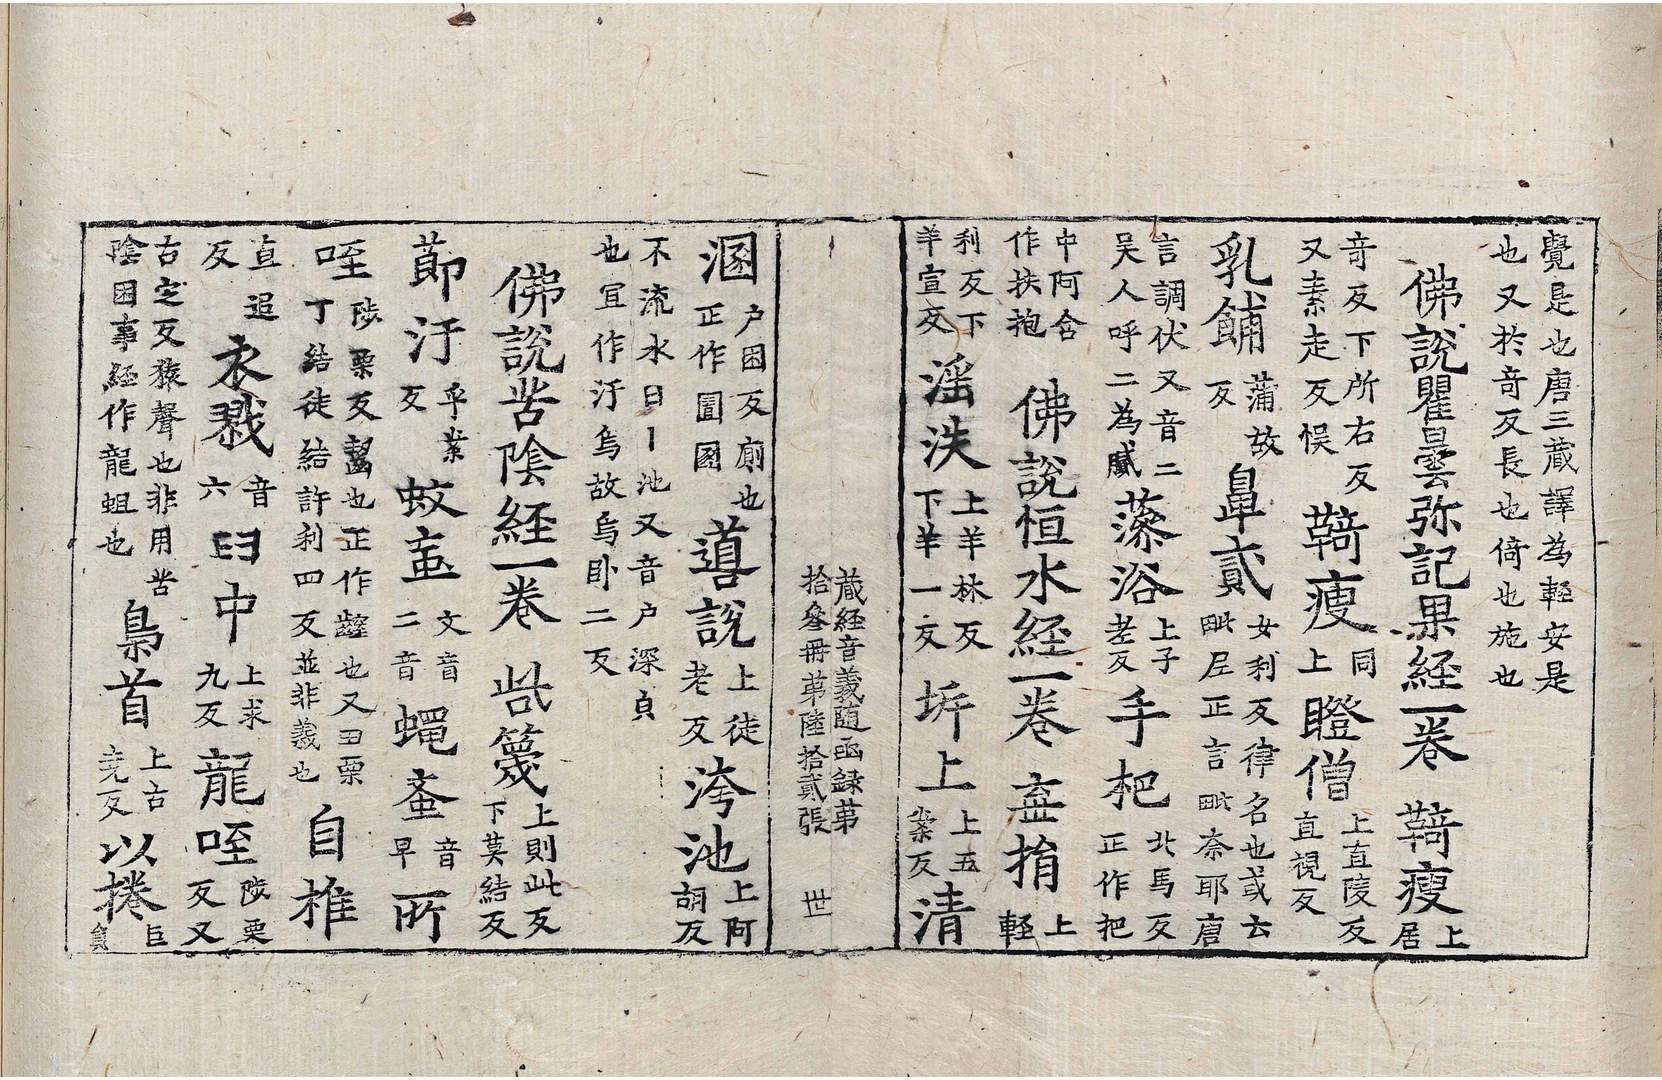 覺是也唐三蔵譯為輕安是
也又於竒反長也倚也施也
佛說瞿曇弥記果経一巻 鞛瘦上居
竒反下所右反又素走反悮 鞛瘦同上 瞪僧上直陵反直視反
乳餔蒲故反 鼻貳女利反律名也或云毗𡰱正言毗奈耶唐
言調伏又音二吴人呼二為膩 藻浴上子老反 手杷北馬反正作把
中阿含作扶抱 佛說恒水経一巻 盍揹上輕
利反下羊宣反 滛泆上羊林反下羊一反 坼上上五案反 清
蔵経音義随函録苐
拾叄冊苐陸拾貳張 世
溷户困反廁也正作圂圂 噵說上徒老反 洿池上阿胡反
不流水曰丨池又音户深皃
也宜作汙烏故烏卧二反
佛說苦陰経一巻 呰篾上則此反下莫結反
莭汙乎案反 蚊䖟文音二音 蠅蚤音早 所
咥陟栗反齧也正作𪘏也又丑栗丁結徒結許利四反並非義也 自椎
直追反 衣㦻音六 臼中上求九反 龍咥陟栗反又
古定反猿聲也非用苦陰因事経作龍蛆也 梟首上古尭反 以捲巨負